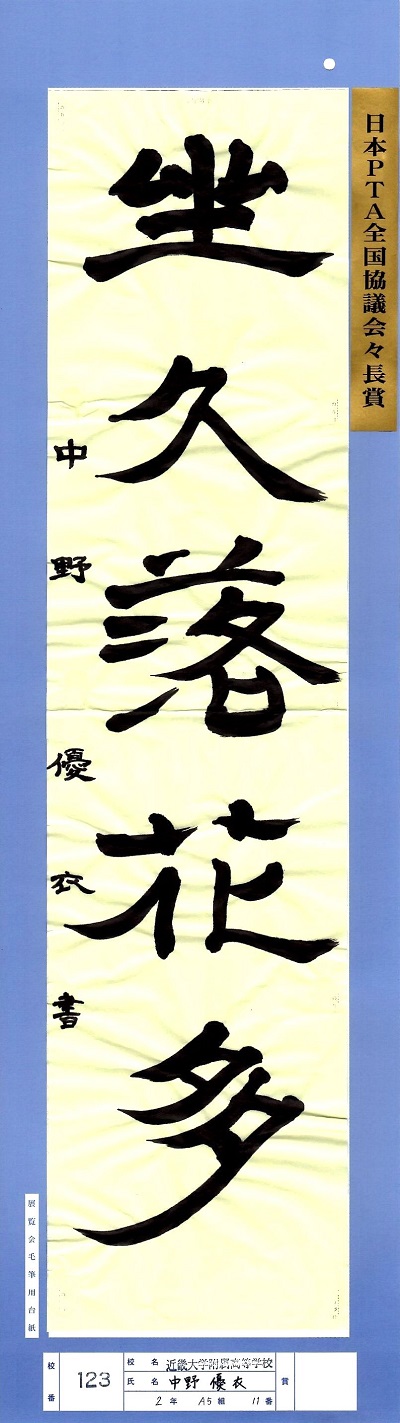 日本PTA全国協議会々長賞
坐久落花多
中野優衣書
展覧会毛筆用台紙
校番 123
校名 近畿大学附属高等学校
氏名 中野 優衣
2年 A5組 11番
賞